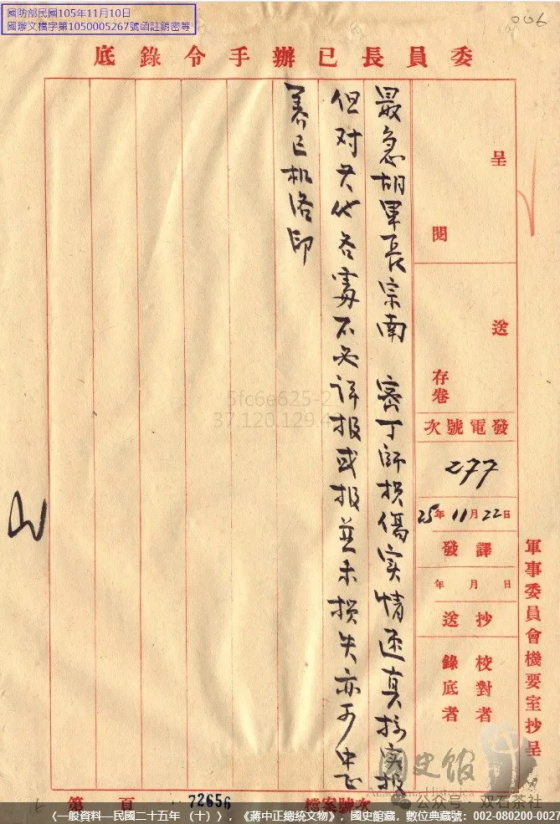 國防部民國105年11月10日
國辦文檔字第1050005267號函註銷密等
006
委員長已辦手令錄底
軍事委員會機要室抄呈
呈閱
送存卷
發電號次
277
25年11月22日
譯發
年月日
抄送
校對者
錄底者
最急胡軍長宗南 密丁師损傷实情 实报
但对其他各處不必详报或报並未损失亦可中正
養巳机洛印
5fc6e625-2
37.120.129.4
國史館
公众号·双石茶社
檔案號次
72656
第 頁
〈一般資料—民國二十五年 （十）〉，《蔣中正總統文物》，國史館藏，數位典藏號：002-080200-002